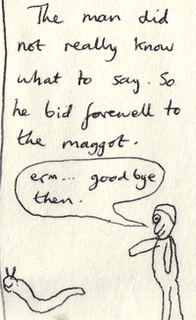 The man did
not really know
what to say. So
he bid farewell to
the maggot.
erm... goodbye
then.